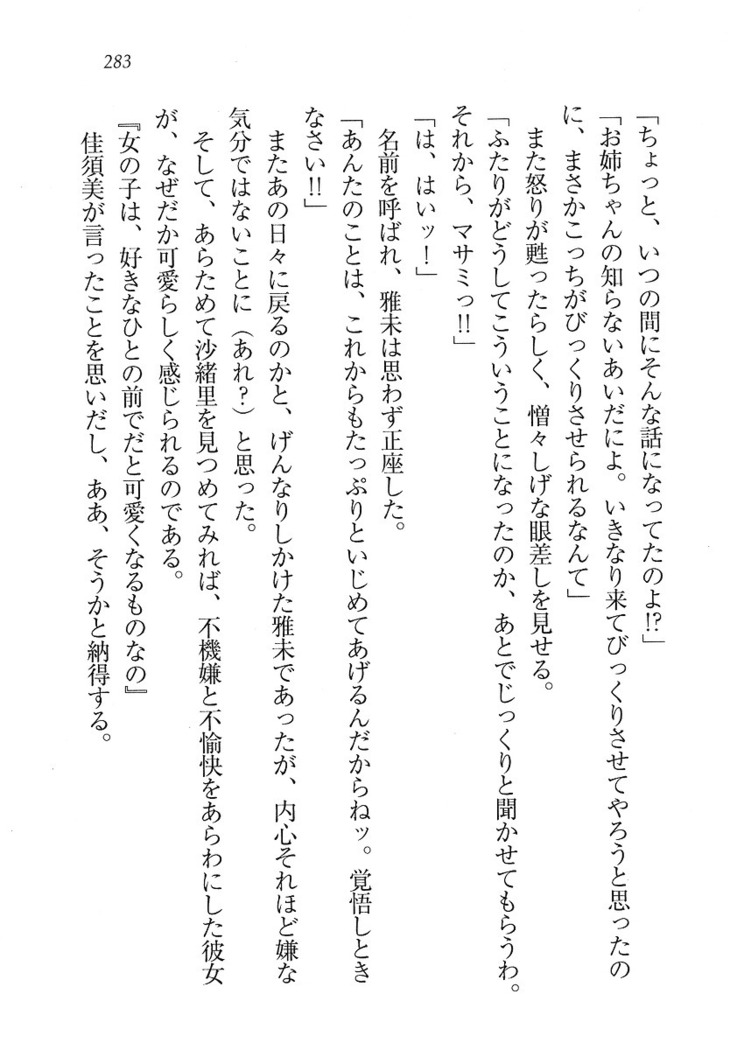 283
「ちょっと、いつの間にそんな話になってたのよ!?」
「お姉ちゃんの知らないあいだによ。いきなり来てびっくりさせてやろうと思ったの
に、まさかこっちがびっくりさせられるなんて」
また怒りが甦ったらしく、憎々しげな眼差しを見せる。
「ふたりがどうしてこういうことになったのか、あとでじっくりと聞かせてもらうわ。
それから、マサミっ!!」
「は、はいッ！」
名前を呼ばれ、雅未は思わず正座した。
「あんたのことは、これからもたっぷりといじめてあげるんだからねッ。覚悟しとき
なさい!!」
またあの日々に戻るのかと、げんなりしかけた雅未であったが、内心それほど嫌な
気分ではないことに（あれ？）と思った。
そして、あらためて沙緒里を見つめてみれば、不機嫌と不愉快をあらわにした彼女
が、なぜだか可愛らしく感じられるのである。
『女の子は、好きなひとの前でだと可愛くなるものなの』
佳須美が言ったことを思いだし、ああ、そうかと納得する。